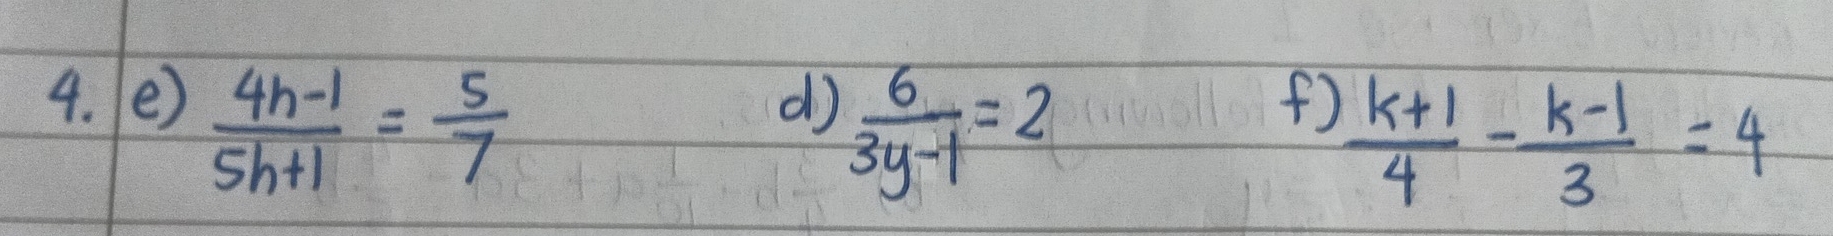 4. e) (4h-1)/(5h+1) = 5/7 d) 6/(3y-1) = 2 f) (k+1)/4 - (k-1)/3 = 4